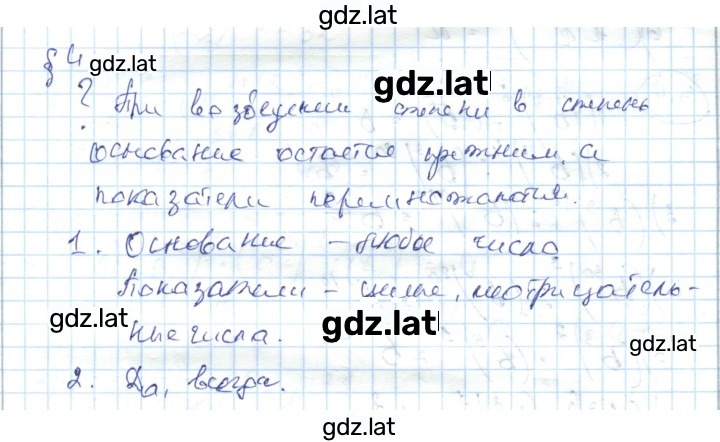 gdz.lat
§ 4 gdz.lat
? При возведении степени в степень gdz.lat
основание остается прежним, а
показатели перемножаются.
1. Основание – любое число
Показатели – целые, неотрицатель-
gdz.lat ные числа. gdz.lat gdz.lat
2. Да, всегда.
gdz.lat